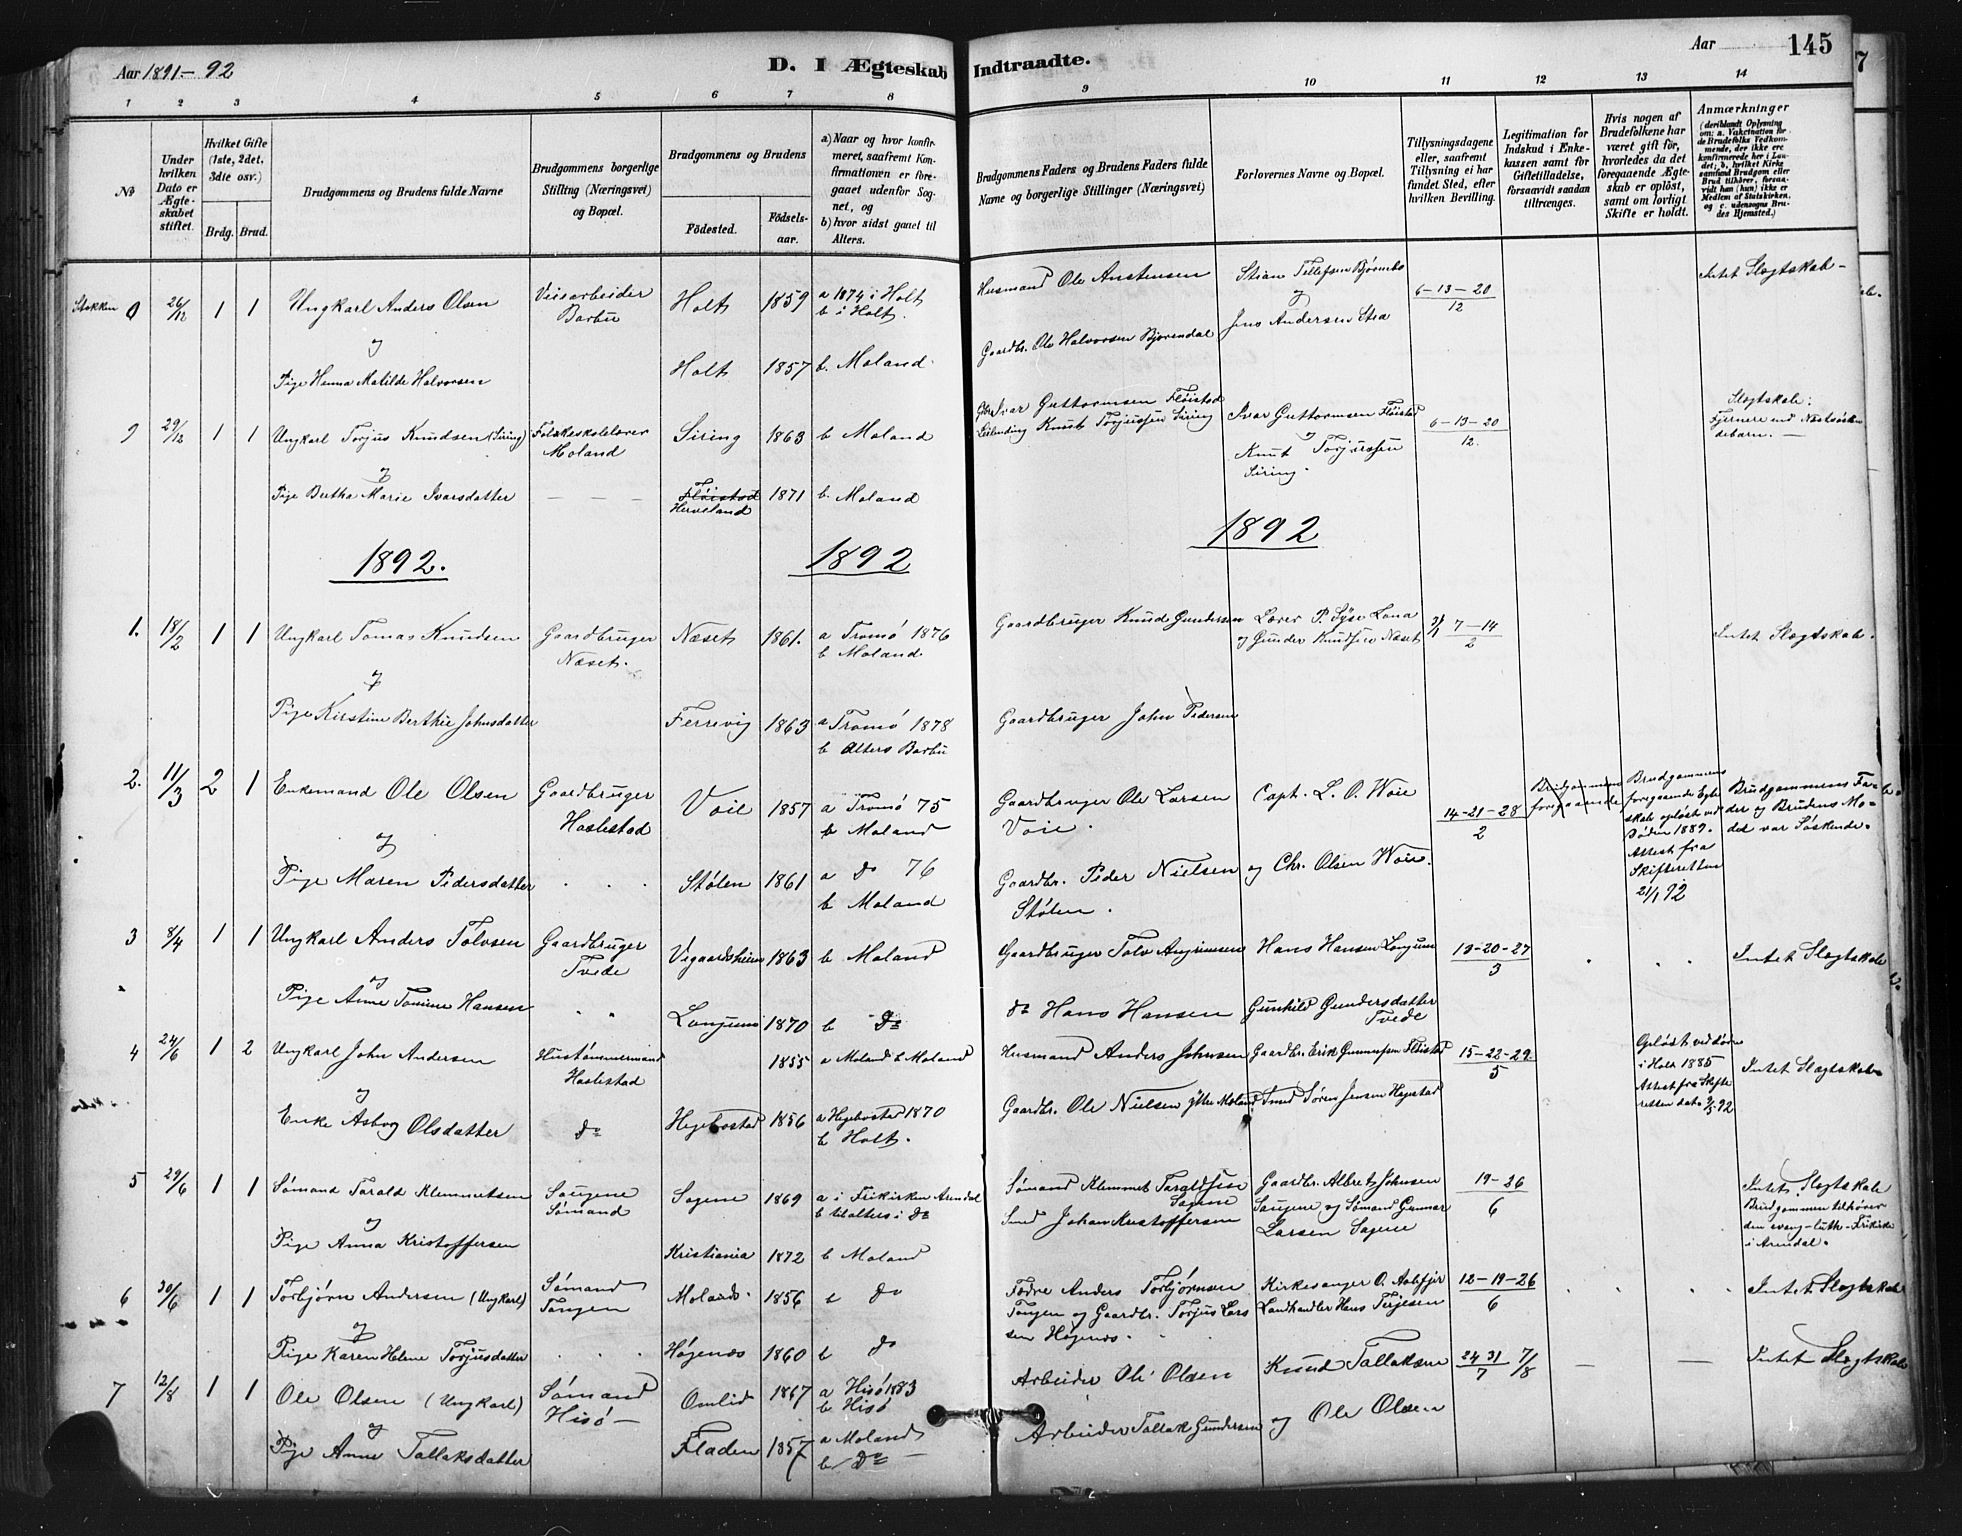 Aar 1891-92
D. I Ægteskab Indtraadte.
Aar
145
1 2 3 4 5 6 7 8 9 10 11 12 13 14
No
Under hvilken Dato er Ægteskabet stiftet.
Hvilket Gifte (1ste, 2det, 3die osv.)
Brdg. Brud.
Brudgommens og Brudens fulde Navne
Brudgommens borgerlige Stilling (Næringsvei) og Bopæl.
Brudgommens og Brudens
Födested.
Födselsaar.
a) Naar og hvor konfirmeret, saafremt Konfirmationen er foregaaet udenfor Sognet, og
b) hvor sidst gaaet til Alters.
Brudgommens Faders og Brudens Faders fulde Navne og borgerlige Stillinger (Næringsvei)
Forlovernes Navne og Bopæl.
Tillysningsdagene eller, saafremt Tillysning ei har fundet Sted, efter hvilken Bevilling.
Legitimation for Indskud i Enkekassen samt for Giftetilladelse, forsaavidt saadan tiltrænges.
Hvis nogen af Brudefolkene har været gift för, hvorledes da det foregaaende Ægteskab er oplöst, samt om lovligt Skifte er holdt.
Anmærkninger
(deriblandt Oplysning om: a. Vakcination for de Brudefolks Vedkommende, der ikke ere konfirmerede her i Landet; b. hvilket Kirkesamfund Brudgom eller Brud tilhörer, forsaavidt han (hun) ikke er Medlem af Statskirken, og c. udensogns Brudes Hjemsted.)
Stokken 26/12 1 1 Ungkarl Anders Olsen Veiarbeider Barbu Holt 1859 a 1874 i Holt b i Holt. Husmand Ole Anstensen Stian Tellefsen 6-13-20/12 Intet Slægtskab
og
Pige Hanna Matilde Halvorsen Holt 1857 b. Moland Gaardbr. Ole Halvorsen Bjorendal og Jens Andersen
9 29/12 1 1 Ungkarl Torjus Knudsen (Siring) Folkeskolelærer Moland Siring 1863 b Moland Ivar Guttormsen Fløistad Knut Torjussen Siring Ivar Guttormsen Fløistad 6-13-20/12. Slægtskab: Fjernere end Næstsøskendebarn.
og
Pige Bertha Marie Ivarsdatter Fløistad 1871 b. Moland og Knut Torjussen Siring.
1892. 1892 1892
1. 18/2 1 1 Ungkarl Tomas Knudsen Gaardbruger Næset. Næset 1861. a Tromö 1876 b Moland Gaardbruger Knud Gundersen Lærer P. Syse Lona og Gunder Knudsen Næset 7-14/2 Intet Slægtskab.
og
Pige Kirstine Berthie Johnsdatter Fersvig 1863 a Tromö 1878 b Alters Barbu Gaardbruger John Pedersen
2. 11/3 2 1 Enkemand Ole Olsen Gaardbruger Haslestad Voie 1857 a Tromö 75 b Moland Gaardbruger Ole Larsen Voie. Capt. L. O. Woie 14-21-28/2 Brudgommens foregaaende Brudgommens foregaaende Egteskab opløst ved Døden 1889. Attest fra Skifteretten 21/1 92 Brudgommens Fader og Brudens Moder var Søskende.
og
Pige Maren Pedersdatter Stølen 1861 a do 76 b Moland Gaardbr. Peder Nielsen Stølen. og Chr. Olsen Woie.
3 8/4 1 1 Ungkarl Anders Tolvsen Gaardbruger Tvede Vegaardsheien 1863 b Moland Gaardbruger Tolv Hans Hansen Longum 13-20-27/3 Intet Slægtskab
og
Pige Anne Tomine Hansen Longum 1870 b do do Hans Hansen Gunhild Gundersdatter Tvede
4 24/6 1 2 Ungkarl John Andersen Hustømmermand Haslestad 1855 a Moland b Moland Husmand Anders Johnsen Gaardbr. Erik Gunnufsen Fløistad 15-22-29/5 Opløst ved Døden i Holt 1885 Attest fra Skifteretten dat. 9/5 92 Intet Slægtskab
og
Enke Asborg Olsdatter do Hegebostad 1856 a Hegebostad 1870 b Holt. Gaardbr. Ole Nielsen Ytre Moland Smed Søren Jensen
5 29/6 1 1 Sømand Tarald Klemmetsen Saugene Sømand Sagene 1869 a i Frikirken Arendal b til Alters i do Sømand Klemmet Taraldsen Sagene Gaardbr. Albret Johnsen Saugene og Sømand Gunnar Larsen Sagene 19-26/6 Intet Slægtskab Brudgommen tilhører den evang-luth. Frikirke i Arendal.
og
Pige Anna Kristoffersen Kristiania 1872 b Moland Smed Johan Kristoffersen
6 30/6 1 1 Torbjørn Andersen (Ungkarl) Sømand Tangen Moland 1856 b do Fødre Anders Torbjørnsen Tangen og Gaardbr. Torjus Larssen Høgenæs. Kirkesanger O. Landhandler Hans Terjesen 12-19-26/6 Intet Slægtskab
og
Pige Karen Helene Torjusdatter Høgenæs 1860 b do
7 12/8 1 1 Ole Olsen (Ungkarl) Sømand Hisö Omlid 1867 a Hisö 1883 b Hisö Arbeider Ole Olsen Knud Tallaksen 24 31/7 7/8 Intet Slægtskab
og
Pige Anne Tallaksdatter Fladen 1857 a Moland b do Arbeider Tallak Gundersen og Ole Olsen